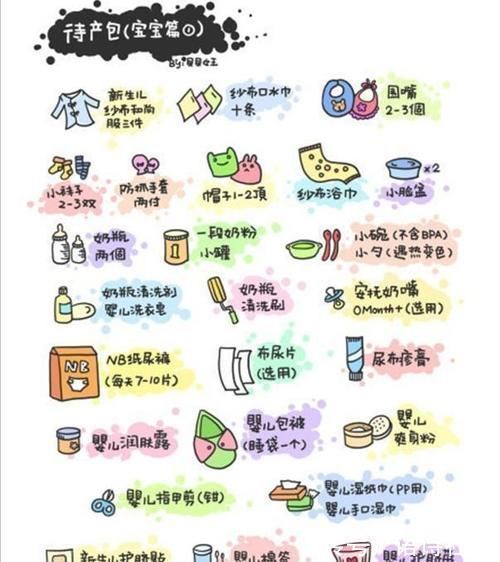 待产包(宝宝篇①)
新生儿
纱布和尚
服三件
纱布口水巾
十条
围嘴
2-3個
小袜子
2-3双
防抓手套
两付
帽子1-2頂
纱布浴巾
×2
小脸盆
奶瓶
两個
一段奶粉
小罐
小碗(不含BPA)
小勺(遇热变色)
奶瓶清洗剂
婴儿洗衣皂
奶瓶
清洗刷
安抚奶嘴
0Month+(选用)
NB
NB纸尿裤
(每天7-10片)
布尿片
(选用)
尿布疹膏
嬰儿润肤露
嬰儿包被
(睡袋一个)
嬰儿
爽身粉
嬰儿指甲剪(钳)
嬰儿湿纸巾(PP用)
嬰儿手口湿巾
新生儿护脐贴
嬰儿棉签